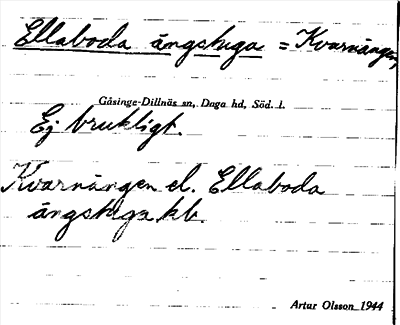 Ellaboda ängstuga = Kvarnängen,
Gåsinge-Dillnäs sn, Daga hd, Söd. l.
Ej brukligt.
Kvarnängen el. Ellaboda
ängstuga kb.
Artur Olsson 1944